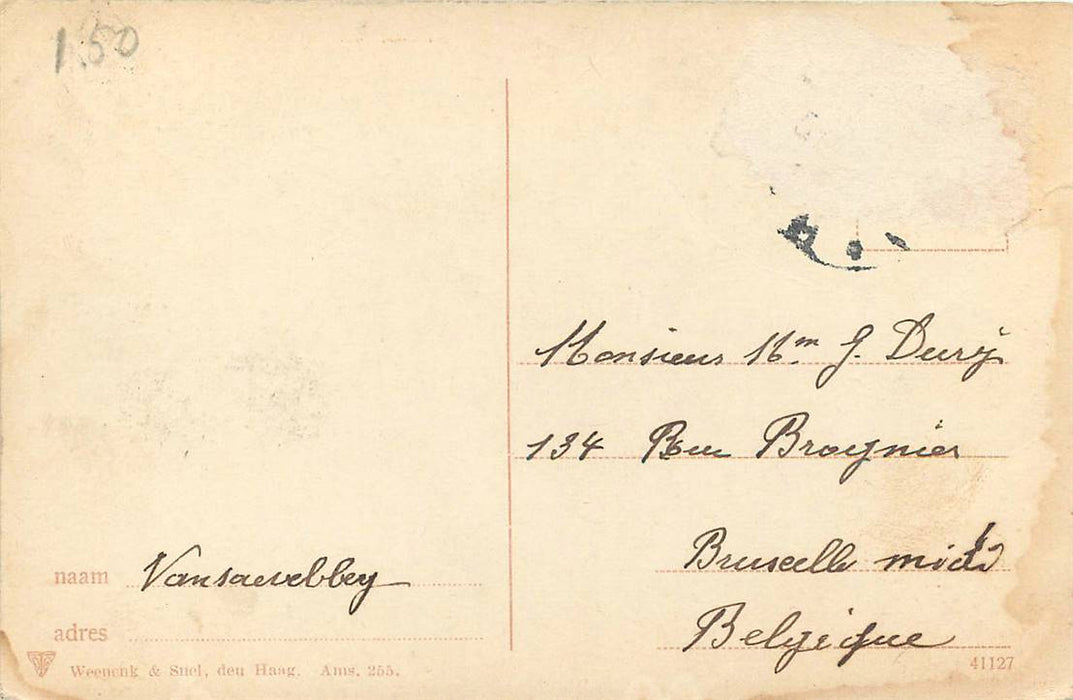 1.50
Monsieur Mm J. Dury
134 Rue Brognier
Bruxelle midi
Belgique
naam Vansaevebbey
adres
Weenenk & Snel, den Haag. Ams. 255.
41127